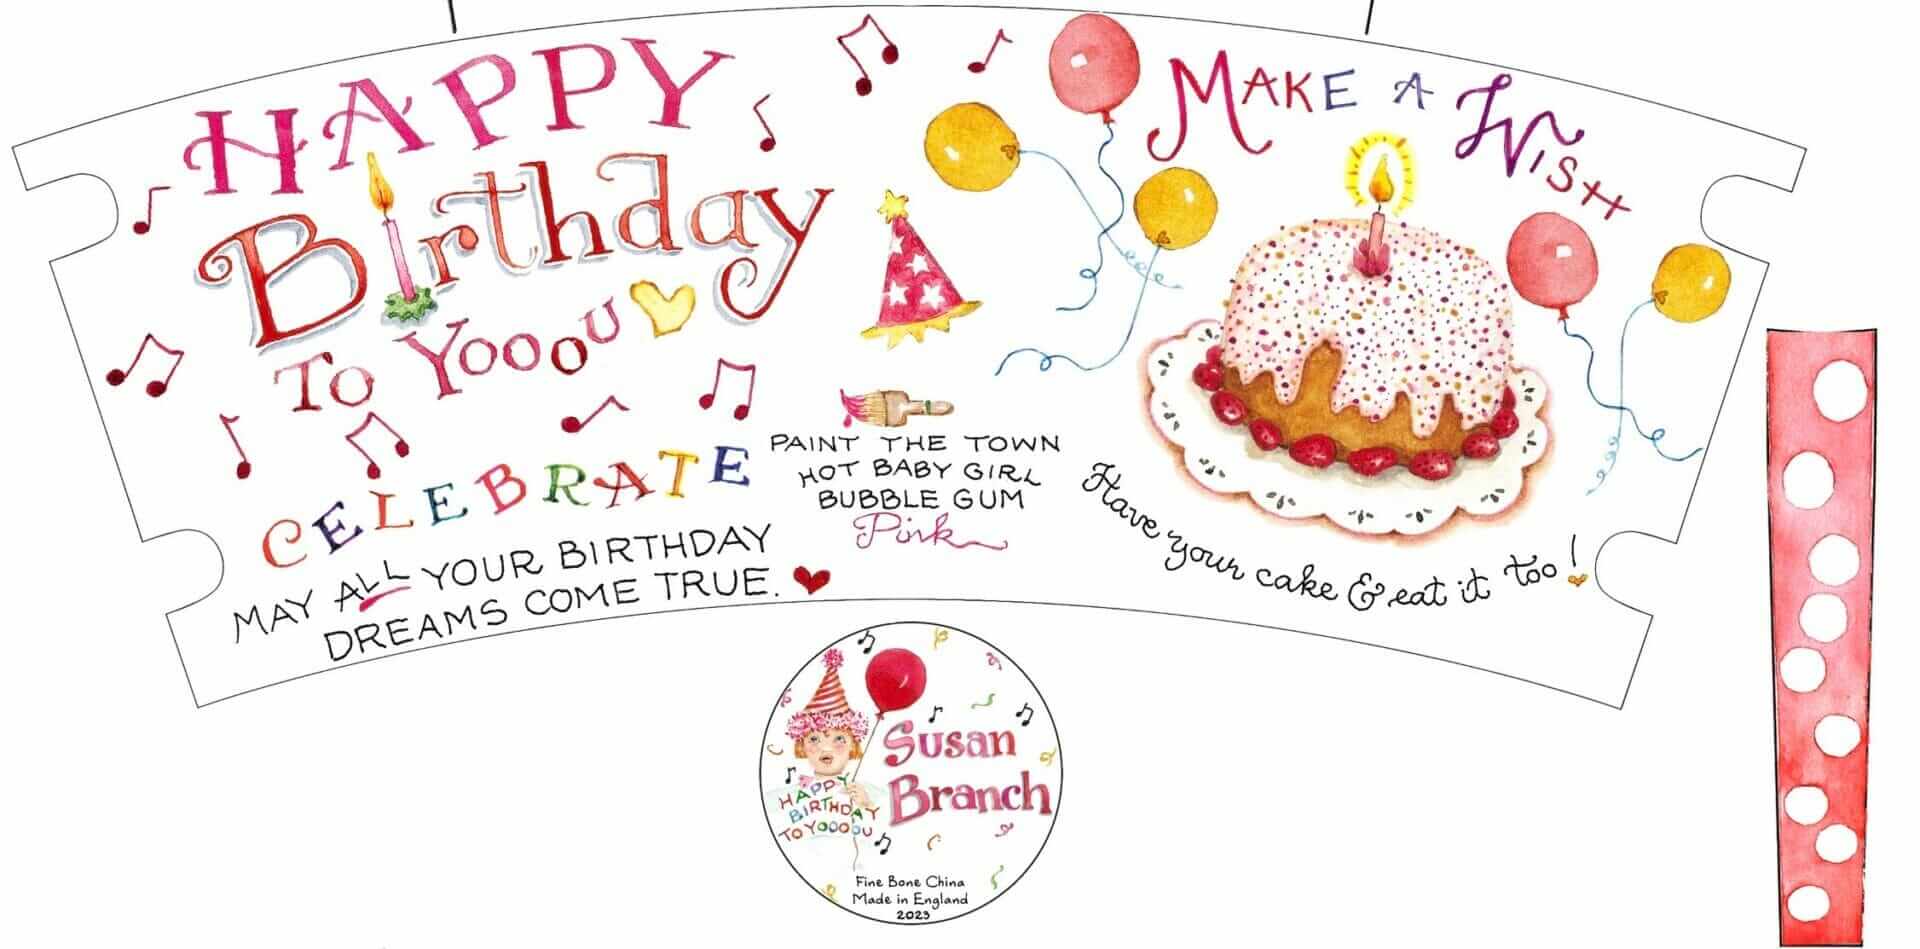 HAPPY
Birthday
To Yooou
CELEBRATE
MAY ALL YOUR BIRTHDAY
DREAMS COME TRUE.
PAINT THE TOWN
HOT BABY GIRL
BUBBLE GUM
Pink
MAKE A WISH
Have your cake & eat it too!
HAPPY
BIRTHDAY
TO YOOOOU
Susan
Branch
Fine Bone China
Made in England
2023